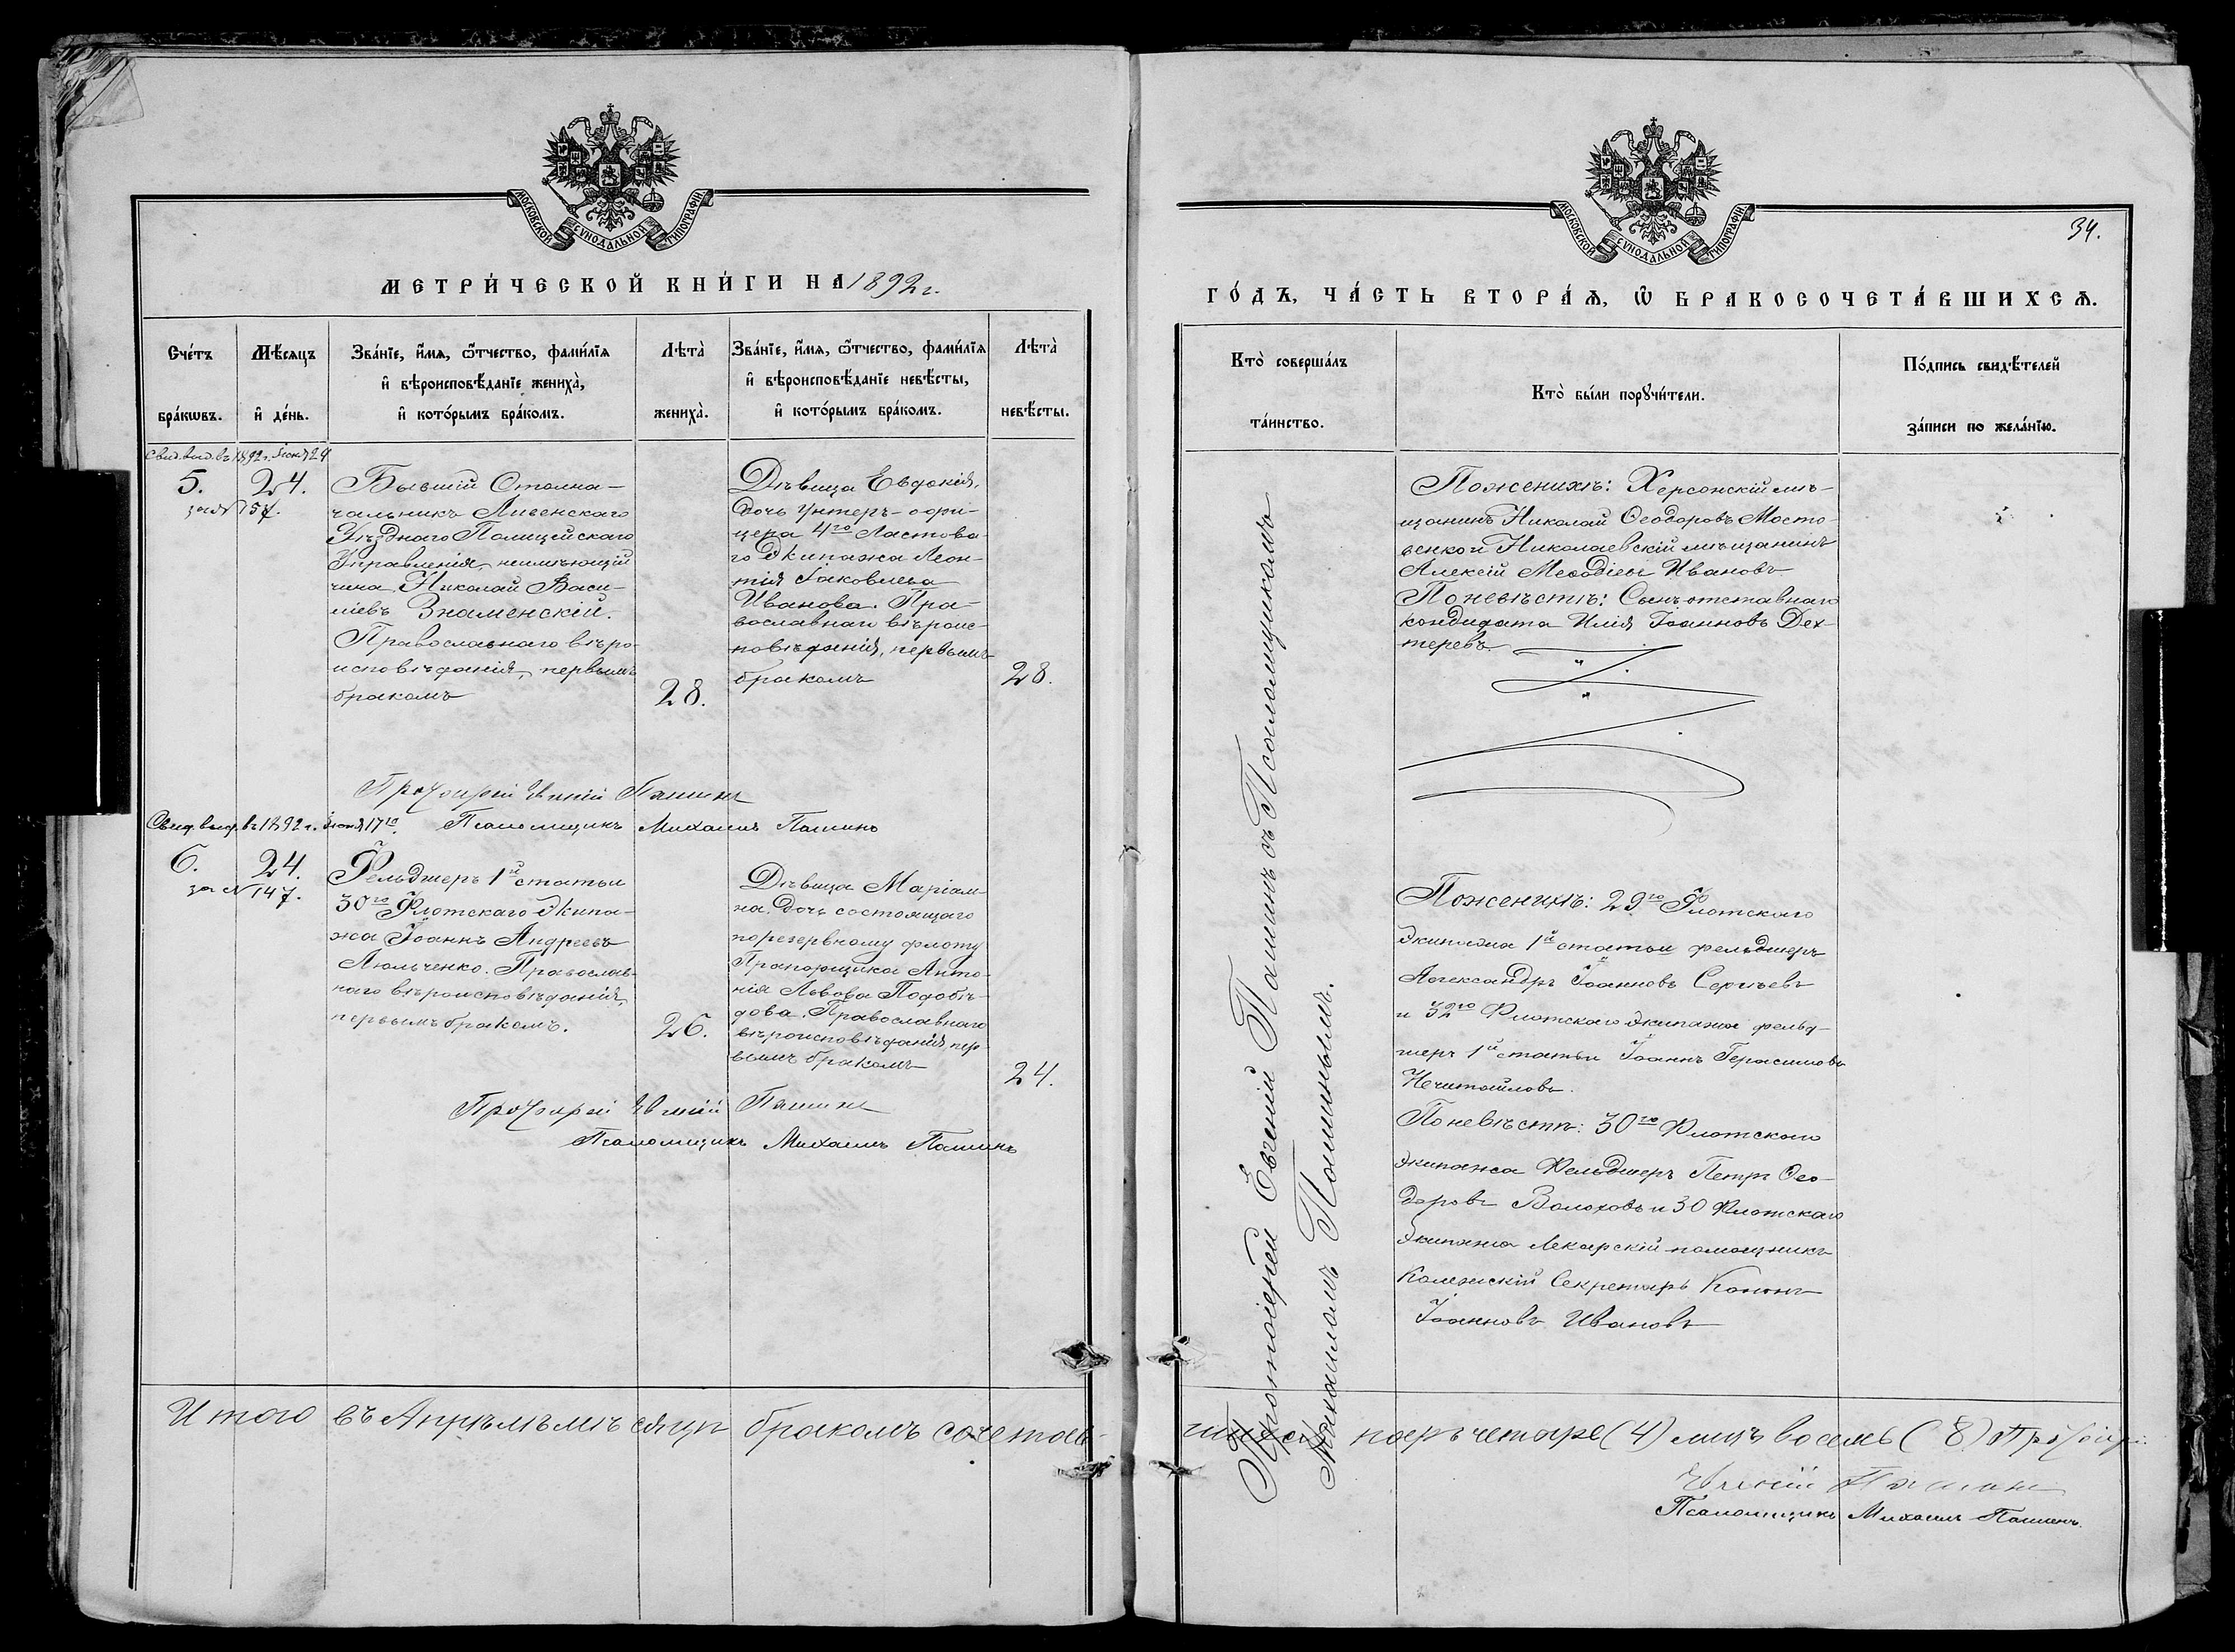 МОСКОВСКОЙ СѴНОДАЛЬНОЙ ТИПОГРАФІИ.
МЕТРИ́ЧЕСКОЙ КНИ́ГИ НА 1892 г.
Сче́тъ бра́кωвъ.
Мѣ́сяцъ и҆ де́нь.
Зва́нїе, и҆́мѧ, ѻ҆́тчество, фами́лїѧ
и҆ вѣроисповѣ́данїе жениха̀,
и҆ кото́рымъ бра́комъ.
Лѣта̀ жениха̀.
Зва́нїе, и҆́мѧ, ѻ҆́тчество, фами́лїѧ
и҆ вѣроисповѣ́данїе невѣ́сты,
и҆ кото́рымъ бра́комъ.
Лѣта̀ невѣ́сты.
Свид. выд. въ 1892 г. Іюня 24
5. 24.
за №157.
Бывшій Столона-
чальникъ
Уѣзднаго Полицейскаго
Управленія, неимѣющій
чина, Николай Васи-
ліевъ Знаменскій.
Православнаго вѣро-
исповѣданія, первымъ
бракомъ
28.
Дѣвица Евдокія,
дочь Унтеръ-офи-
цера 4го Ластова-
го Экипажа Леон-
тія Іаковлева
Иванова. Пра-
вославнаго вѣроис-
повѣданія, первымъ
бракомъ
28.
Протоіерей Евгеній Пашинъ
Псаломщикъ Михаилъ Пашинъ
Свид. выд. въ 1892 г. Іюня 17го.
6. 24.
за №147.
Фельдшеръ 1й статьи
30го Флотскаго Экипа-
жа Іоаннъ Андреевъ
Люльченко. Православ-
наго вѣроисповѣданія,
первымъ бракомъ.
26.
Дѣвица Маріам-
на, дочь состоящаго
по резервному флоту
Прапорщика Анто-
нія Львова Подобѣ-
дова. Православнаго
вѣроисповѣданія, пер-
вымъ бракомъ
24.
Протоіерей Евгеній Пашинъ
Псаломщикъ Михаилъ Пашинъ
Итого въ Апрѣлѣ мѣсяцѣ бракомъ сочетав-
МОСКОВСКОЙ СѴНОДАЛЬНОЙ ТИПОГРАФІИ.
34.
ГО́ДЪ, ЧА́СТЬ ВТОРА́Ѧ, Ѽ БРАКОСОЧЕТА́ВШИХСѦ.
Кто̀ соверша́лъ
та́инство.
Кто̀ бы́ли порꙋчи́тели.
По́дпись свидѣ́телей
за́писи по жела́нїю.
Протоіерей Евгеній Пашинъ съ Псаломщикомъ
Михаиломъ Пашинымъ.
По женихѣ: Херсонскій мѣ-
щанинъ Николай Ѳеодоровъ Мосто-
венко и Николаевскій мѣщанинъ
Алексій Меѳодіевъ Ивановъ
По невѣстѣ: Сынъ отставнаго
кондидата Илія Іоанновъ Дех-
теревъ
По женихѣ: 29го Флотскаго
Экипажа 1й статьи фельдшеръ
Александръ Іоанновъ Сергѣевъ
и 32го Флотскаго экипажа фельд-
шеръ 1й статьи Іоаннъ Герасимовъ
Нечитайловъ.
По невѣстѣ: 30го Флотскаго
Экипажа Фельдшеръ Петръ Ѳео-
доровъ Волоховъ и 30 Флотскаго
Экипажа Лекарскій помощникъ
Колежскій Секретарь Кононъ
Іоанновъ Ивановъ
шихся паръ четыре (4) лицъ восемь (8) Протоіерей
Евгеній Пашинъ
Псаломщикъ Михаилъ Пашинъ.